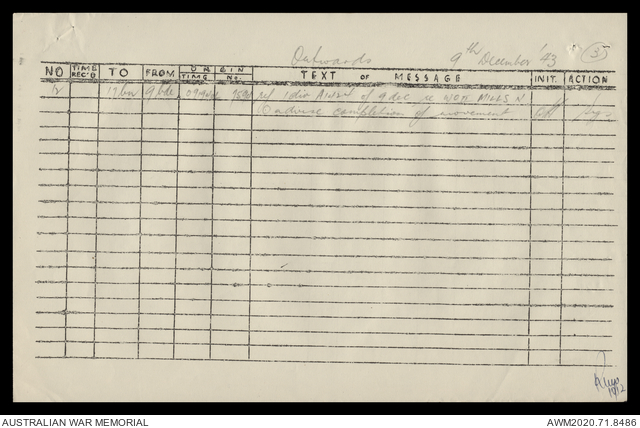 Outwards 9th December '43 35
NO TIME REC'D TO FROM ORIGIN TIME NO. TEXT OF MESSAGE INIT. ACTION
12 17 bn 9 bde ref 1 div of 9 dec re WOII MILLS N
advise completion of movement
AUSTRALIAN WAR MEMORIAL AWM2020.71.8486